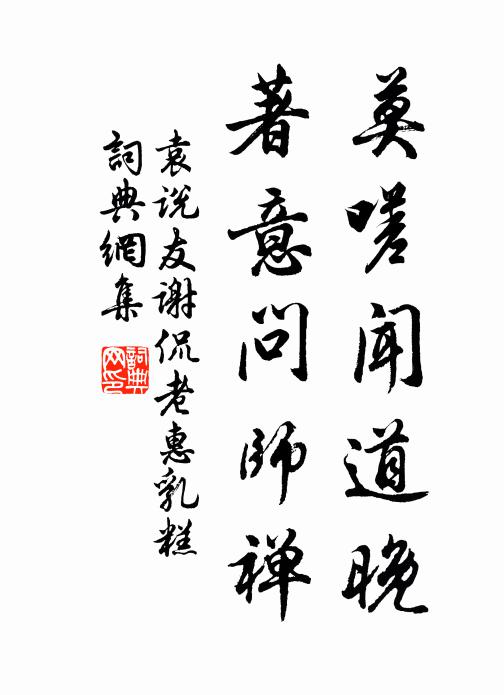 莫嗟闻道晚
著意问师禅
袁说友谢侃老惠乳糕
词典网集
词典网印